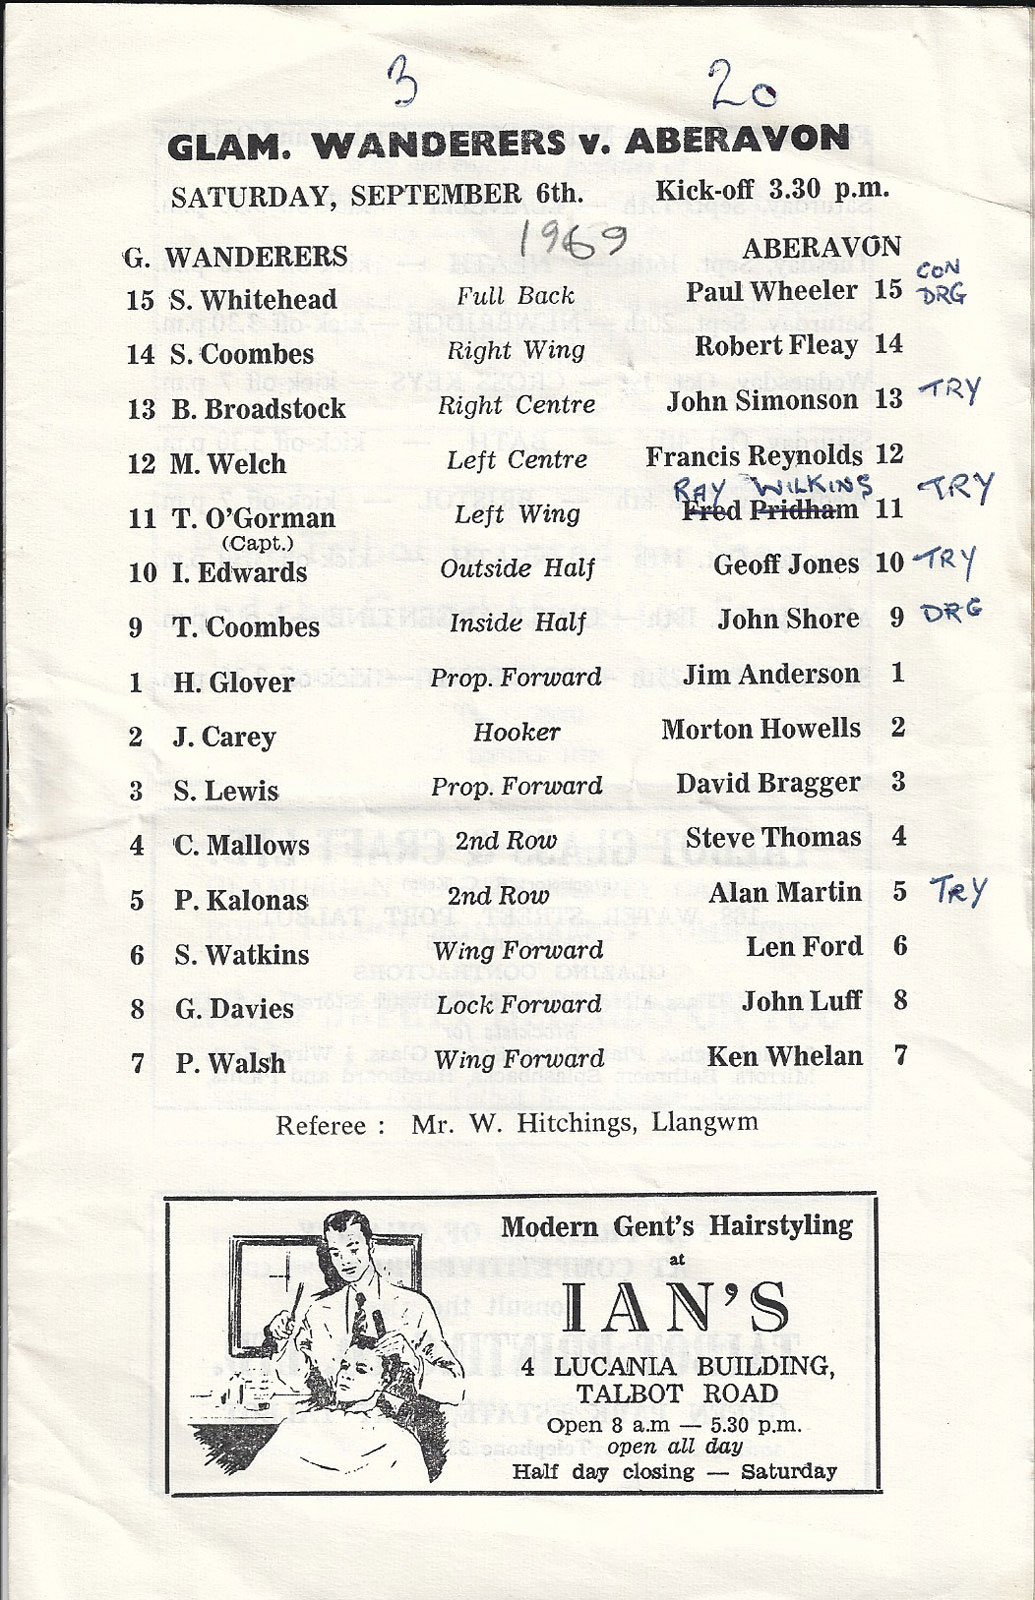 3 20
GLAM. WANDERERS v. ABERAVON
SATURDAY, SEPTEMBER 6th. Kick-off 3.30 p.m.
1969
G. WANDERERS ABERAVON
CON
15 S. Whitehead Full Back Paul Wheeler 15 DRG
14 S. Coombes Right Wing Robert Fleay 14
13 B. Broadstock Right Centre John Simonson 13 TRY
12 M. Welch Left Centre Francis Reynolds 12
RAY WILKINS TRY
11 T. O'Gorman Left Wing Fred Pridham 11
(Capt.)
10 I. Edwards Outside Half Geoff Jones 10 TRY
9 T. Coombes Inside Half John Shore 9 DRG
1 H. Glover Prop. Forward Jim Anderson 1
2 J. Carey Hooker Morton Howells 2
3 S. Lewis Prop. Forward David Bragger 3
4 C. Mallows 2nd Row Steve Thomas 4
5 P. Kalonas 2nd Row Alan Martin 5 TRY
6 S. Watkins Wing Forward Len Ford 6
8 G. Davies Lock Forward John Luff 8
7 P. Walsh Wing Forward Ken Whelan 7
Referee : Mr. W. Hitchings, Llangwm
Modern Gent's Hairstyling
at
IAN'S
4 LUCANIA BUILDING,
TALBOT ROAD
Open 8 a.m — 5.30 p.m.
open all day
Half day closing — Saturday